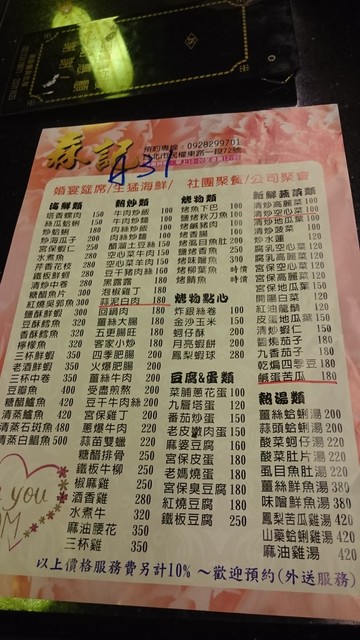 森記
預約專線：0928299701
北市民權東路一段72號
A31
婚宴筵席/生猛海鮮/ 社團聚餐/公司聚會
海鮮類
塔香螺肉 150
絲瓜蛤蜊 150
炒蛤蜊 180
炒海瓜子 200
宮保蝦仁 250
水煮魚 280
芹香花枝 280
鐵板鮮蚵 280
清炒中卷 280
糖醋魚片 300
紅燒臭豆腐魚 300
鹽酥鮮蝦 300
豆酥鱈魚 320
香酥鱈魚 320
檸檬魚 320
三杯鮮蝦 350
老酒鮮蝦 350
三杯中卷 350
豆瓣魚 400
糖醋鱸魚 420
清蒸鱸魚 420
清蒸石斑魚 480
清蒸白鯧魚 500
熱炒類
牛肉炒飯 100
牛肉炒麵 100
肉絲炒飯 100
肉絲炒麵 100
醋溜土豆絲 150
空心菜牛肉 150
空心菜羊肉 150
豆干豬肉絲 160
泡椒雞丁 180
蒜泥白肉 180
回鍋肉 180
薑絲大腸 180
五更腸旺 200
客家小炒 180
四季肥腸 200
火爆肥腸 200
薑絲牛肉 200
受盡煎熬 200
豆干牛肉絲 200
宮保雞丁 200
蔥爆牛肉 220
蒜苗雙臘 220
糖醋排骨 250
鐵板牛柳 250
椒麻雞 250
酒香雞 280
水煮牛 320
麻油腰花 350
三杯雞 350
燒烤類
烤魚下巴 100
鹽烤秋刀魚 100
烤鹹豬肉 100
烤香腸 100
烤虱目魚肚 200
鹽烤香魚 250
烤味噌魚 300
烤柳葉魚 時價
烤鯖魚 時價
燒物點心
炸銀絲卷 100
金沙玉米 150
蚵仔酥 200
月亮蝦餅 200
鳳梨蝦球 280
豆腐&蛋類
菜脯蔥花蛋 100
九層塔蛋 120
番茄炒蛋 150
老皮嫩肉 150
麻婆豆腐 160
宮保皮蛋 180
老媽燒蛋 180
宮保臭豆腐 180
紅燒豆腐 180
鐵板豆腐 250
新鮮蔬菜類
清炒高麗菜 100
清炒空心菜 100
清炒地瓜葉 100
清炒菠菜 100
炒水蓮 120
腐乳空心菜 120
腐乳高麗菜 120
宮保空心菜 120
宮保高麗菜 120
宮保地瓜葉 120
開陽白菜 120
紅油皮蛋 120
皮蛋地瓜葉 150
清炒蝦仁 150
醬燒茄子 180
九香茄子 180
乾煸四季豆 180
鹹蛋苦瓜 180
熱湯類
薑絲蛤蜊湯 200
蒜頭蛤蜊湯 200
酸菜蚵仔湯 200
酸菜肚片湯 220
虱目魚肚湯 220
薑絲鮮魚湯 380
味噌鮮魚湯 380
鳳梨苦瓜雞湯 420
山藥蛤蜊雞湯 420
麻油雞湯 420
you
以上價格服務費另計10% ～歡迎預約(外送服務)